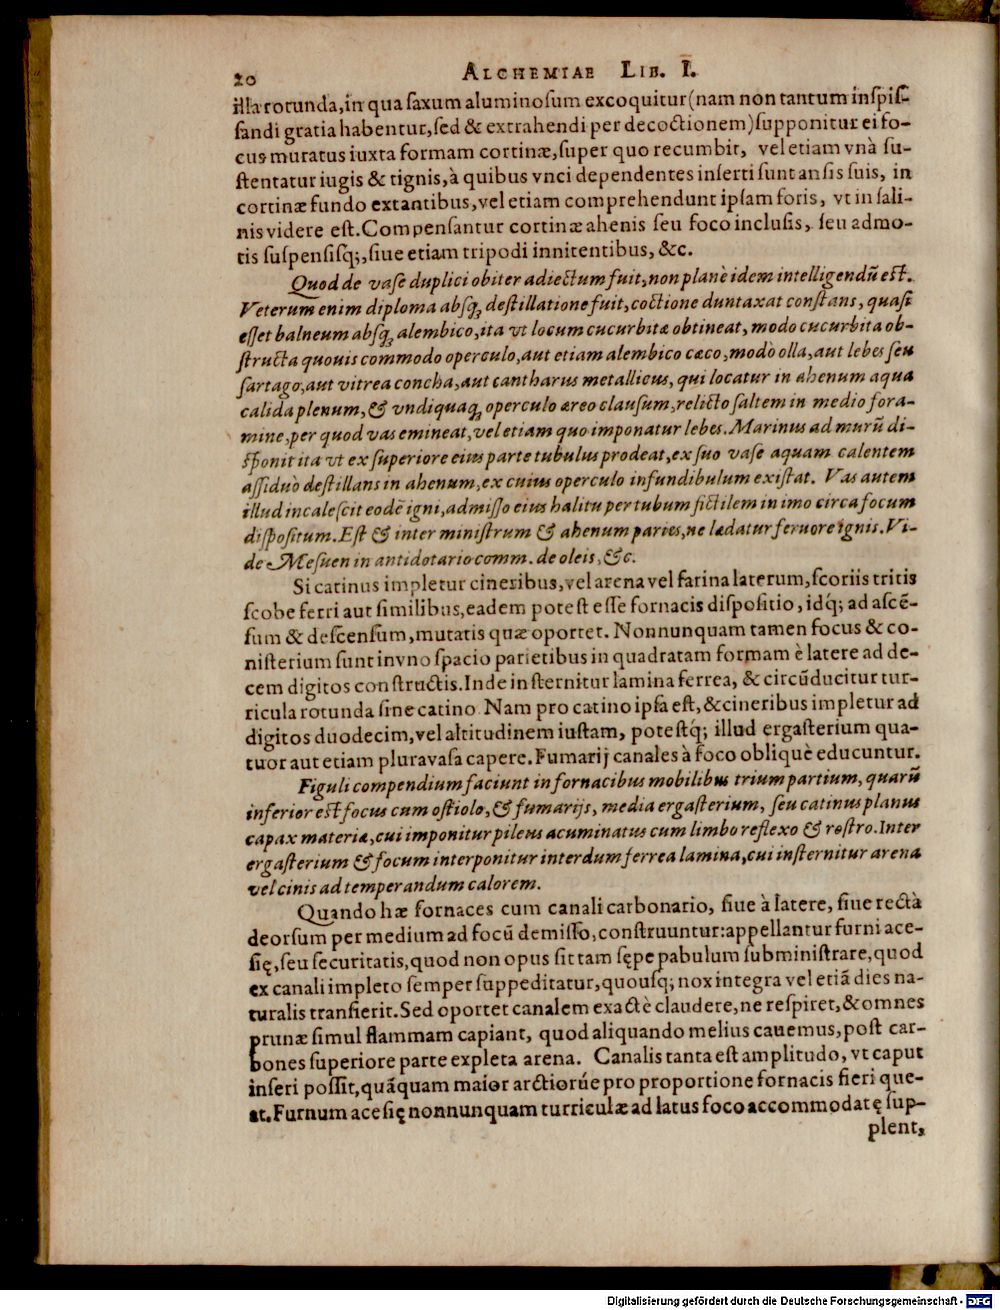 20 ALCHEMIAE LIB. I.
illa rotunda, in qua saxum aluminosum excoquitur (nam non tantum inspis-
sandi gratia habentur, sed & extrahendi per decoctionem) supponitur ei fo-
cus muratus iuxta formam cortinæ, super quo recumbit, vel etiam vnà su-
stentatur iugis & tignis, à quibus vnci dependentes inserti sunt ansis suis, in
cortinæ fundo extantibus, vel etiam comprehendunt ipsam foris, vt in sali-
nis videre est. Compensantur cortinæ ahenis seu foco inclusis, seu admo-
tis suspensisq;, siue etiam tripodi innitentibus, &c.
Quod de vase duplici obiter adiectum fuit, non planè idem intelligendũ est.
Veterum enim diploma absq; destillatione fuit, coctione duntaxat constans, quasi
esset balneum absq; alembico, ita vt locum cucurbitæ obtineat, modo cucurbita ob-
structa quouis commodo operculo, aut etiam alembico cæco, modò olla, aut lebes seu
sartago, aut vitrea concha, aut cantharus metallicus, qui locatur in ahenum aqua
calida plenum, & vndiquaq; operculo æreo clausum, relicto saltem in medio fora-
mine, per quod vas emineat, vel etiam quo imponatur lebes. Marinus ad murũ di-
sponit ita vt ex superiore eius parte tubulus prodeat, ex suo vase aquam calentem
assiduò destillans in ahenum, ex cuius operculo infundibulum existat. Vas autem
illud incalescit eodē igni, admisso eius halitu per tubum fictilem in imo circa focum
dispositum. Est & inter ministrum & ahenum paries, ne lædatur feruore ignis. Vi-
de Mesuen in antidotario comm. de oleis, &c.
Si catinus impletur cineribus, vel arena vel farina laterum, scoriis tritis
scobe ferri aut similibus, eadem potest esse fornacis dispositio, idq́; ad ascē-
sum & descensum, mutatis quæ oportet. Nonnunquam tamen focus & co-
nisterium sunt in vno spacio parietibus in quadratam formam è latere ad de-
cem digitos constructis. Inde insternitur lamina ferrea, & circũducitur tur-
ricula rotunda sine catino Nam pro catino ipsa est, & cineribus impletur ad
digitos duodecim, vel altitudinem iustam, potestq́; illud ergasterium qua-
tuor aut etiam plura vasa capere. Fumarij canales à foco obliquè educuntur.
Figuli compendium faciunt in fornacibus mobilibus trium partium, quarũ
inferior est focus cum ostiolo, & fumarijs, media ergasterium, seu catinus planus
capax materiæ, cui imponitur pileus acuminatus cum limbo reflexo & rostro. Inter
ergasterium & focum interponitur interdum ferrea lamina, cui insternitur arena
vel cinis ad temperandum calorem.
Quando hæ fornaces cum canali carbonario, siue à latere, siue rectà
deorsum per medium ad focũ demisso, construuntur: appellantur furni ace-
się, seu securitatis, quod non opus sit tam sępe pabulum subministrare, quod
ex canali impleto semper suppeditatur, quousq; nox integra vel etiã dies na-
turalis transierit. Sed oportet canalem exactè claudere, ne respiret, & omnes
prunæ simul flammam capiant, quod aliquando melius cauemus, post car-
bones superiore parte expleta arena. Canalis tanta est amplitudo, vt caput
inseri possit, quãquam maior arctiorúe pro proportione fornacis fieri que-
at. Furnum acesię nonnunquam turriculæ ad latus foco accommodatę sup-
plent,
Digitalisierung gefördert durch die Deutsche Forschungsgemeinschaft - DFG